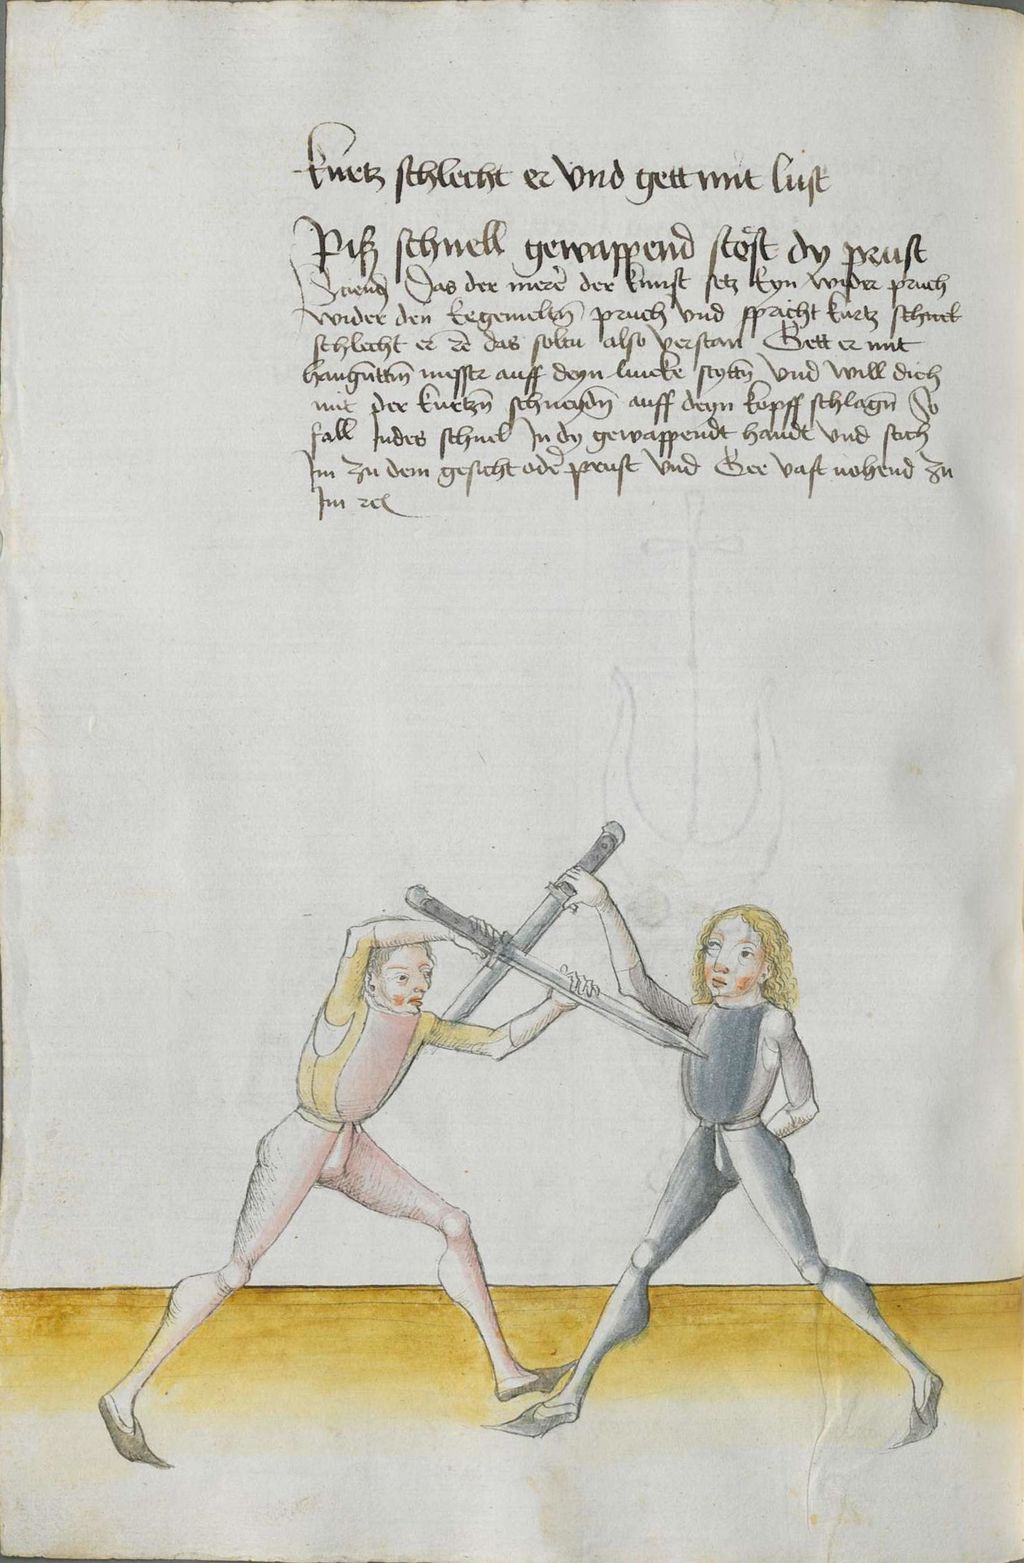 kurtz schlecht er vnd gett mit lust
Pisz schnell gewappend stöst dy prust
Sciend Das der merer der kunst setz eyn wider pruch
wider den ergemeltn pruch vnd spricht kurtz schnel
schlecht er rc das soltu also verstan Gett er mit
messer auff deyn lincke seyttn vnd will dich
mit der kurtzn schneydn auff deyn kopff schlagn So
fall Indes schnel In dy gewappendt handt vnd stich
Im zu dem gesicht oder prust vnd Gee vast nohend zu
Im rc